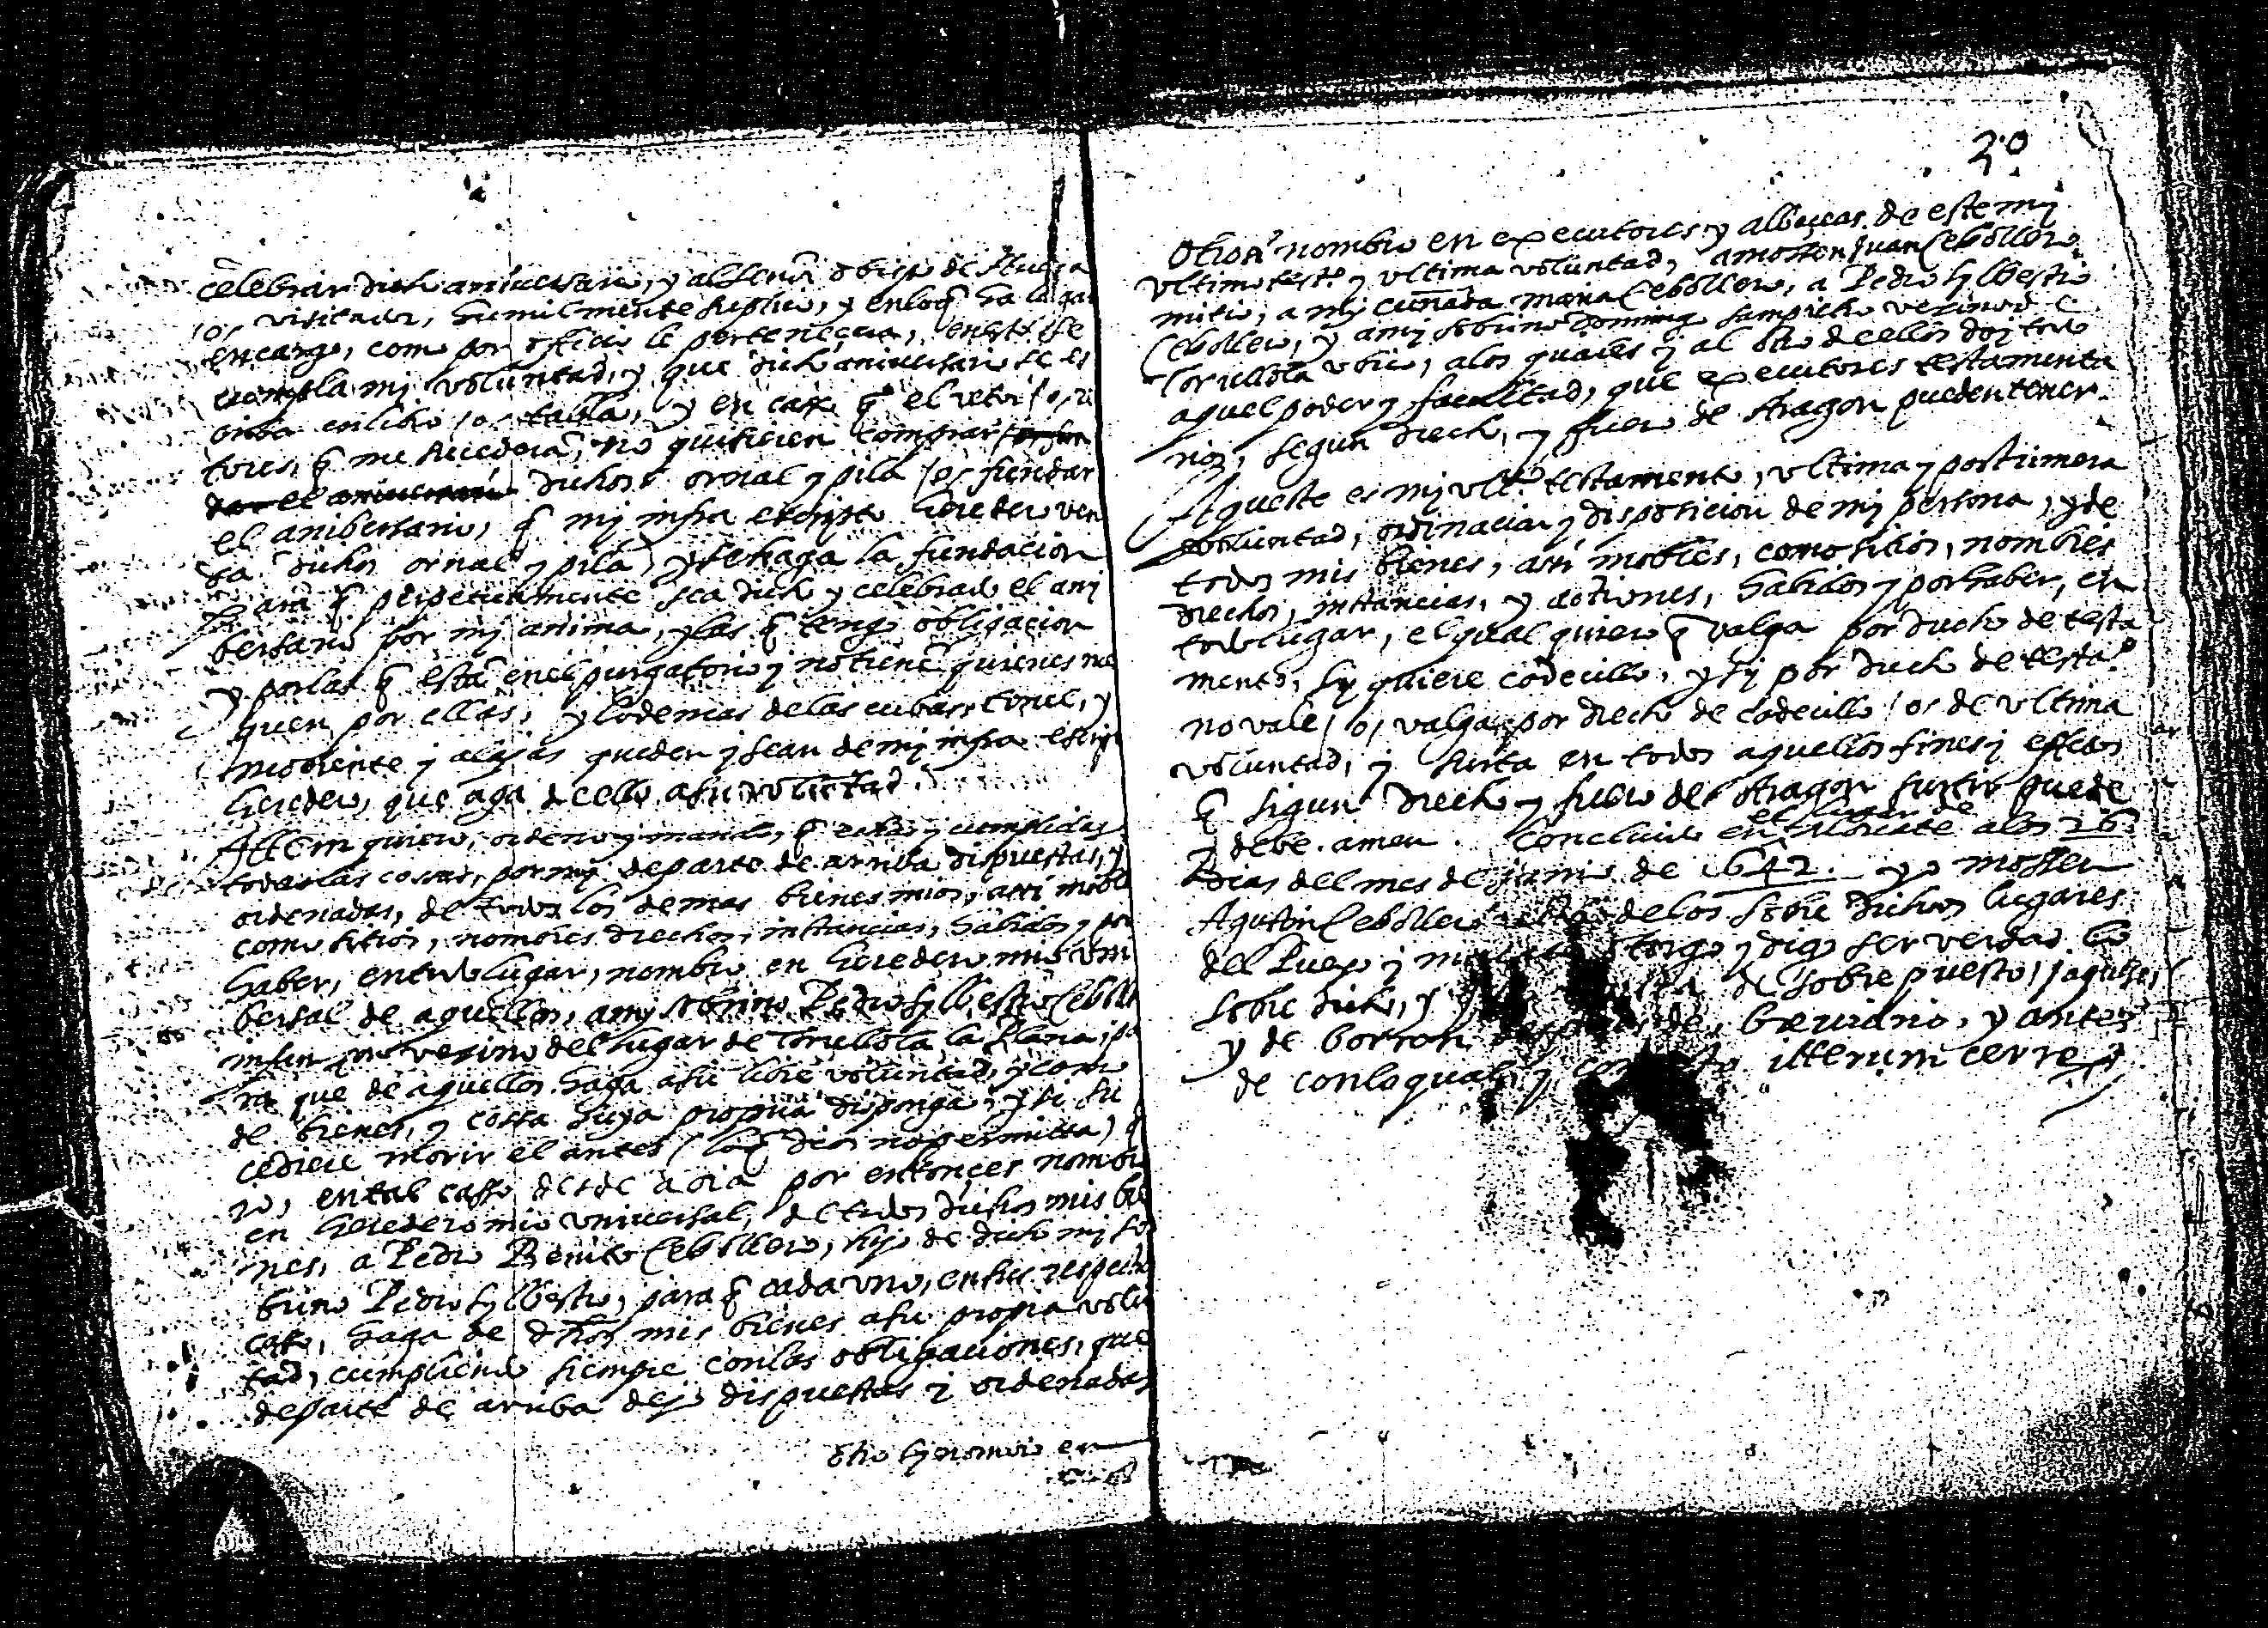 celebrar dicho aniversario, y al Senor obispo de Huesca
/o/ visitador, humilmente suplico, y en lo q̃ ha lugar
encargo, como por officio le pertenezca,
cumpla mi voluntad, y que dicho aniversario se es
criba en libro /o/ tabla, y en caso q̃ el retor /o/ re
tores, q̃ me sucedera, no quisieren comprar
dar el aniversario dichos ornal y pila /o/ fundar
el anibersario, q̃ mi infra escripto heredero ven
da dichos ornal y pila, y se haga la fundacion
para q̃ perpetuamente sea dicho y celebrado el ani
bersario por mi anima, y las q̃ tengo obligacion
y por las q̃ estã en el purgatorio y no tienẽ quienes rue
guen por ellas, y lo demas de las cubas, torue, y
moviente y alajas queden y sean de mi infra escrip
heredero, que aga de ello a su voluntad.
Attem quiero, ordeno y mando, q̃ y cumplidas
todas las cossas, por mi de parte de arriba dispuestas, y
ordenadas, de todos los demas bienes mios, assi mobl
como sitios, nombres drechos, instancias, habidos y por
haber, en todo lugar, nombro en heredero mio uni
bersal de aquellos, a my sobrino Pedro Sylbestro Ceboll
vezino del lugar de Torullola la Plana, pa
ra que de aquellos haga a su libre voluntad, y como
de bienes, y cossa suya propria disponga, y si su
cediere morir el antes (lo q̃ dios no permitta) q
en tal casso, desde aora por entonçes nombr
en heredero mio universal, de todos dichos mis bie
nes, a Pedro Benito Cebollero, hijo de dicho mi so
brino Pedro Sylbestro, para q̃ cada uno, en sus respecti
casso, haga de dhos mis bienes a su propia volu
tad, cumpliendo siempre con las obligaciones, que
de parte de arriba dejo dispuestas i ordenadas
otro sy nombro en
20
Otrosi nombro en executores y albaceas de este my
ultimo testo y ultima voluntad, a mossen Juan Cebollero
mi tio, a my cuñada maria Cebollero, a Pedro Sylbestro
Cebollero, y a my sobrino Domingo Sampietro vezinos de
Torullola, a los quales y al de ellos doy todo
aquel poder y facultad, que executores testamenta
rios, segun drecho, y fuero de Aragon pueden tener.
Aqueste es my ult.o testamento, ultima y postrimera
voluntad, ordinacion y disposicion de my persona, y de
todos mis bienes, assi mobles, como sitios, nombres
drechos, instancias, y actiones, habidos y por haber, en
todo lugar, el qual quiero q̃ valga por drecho de testa
mento, sy quiere codecillo, y si por drecho de testa.o
no vale /o/ valga, por drecho de codecillo /o/ de ultima
voluntad, y surta en todos aquellos fines y effetos
q̃ sigun drecho y fuero del Aragon surtir puede
y debe. amen. Concluido en el lugar de a los 26
Dias del mes de junio de 1642. yo mossen
Agustin Cebollero de los sobre dichos lugares
del Pueyo y otorgo y digo ser verdad lo
sobre dicho, y de sobre puesto,
y de borron de, breviario, y antes
de con lo qual, y itterum cerre